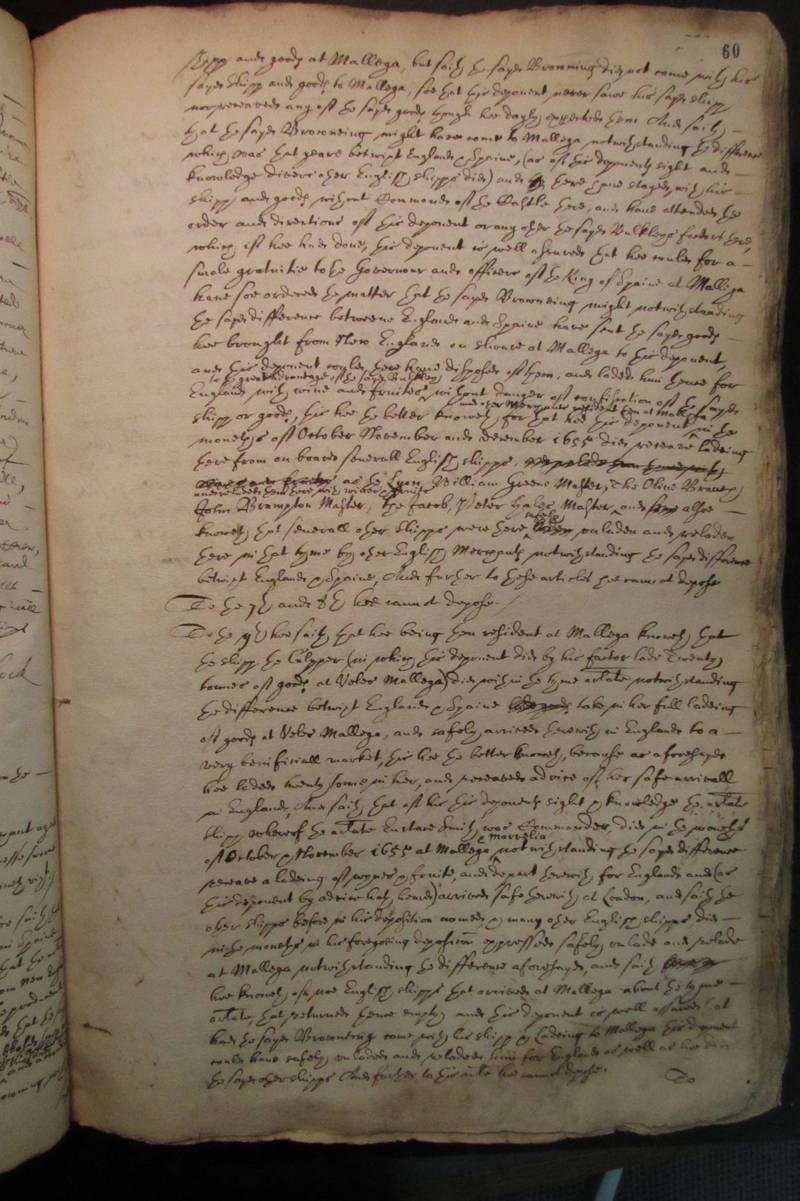 60
shipp and goods at Mallega, but saith the sayd Browning did not come with his
sayd shipp and goods to Mallega, soe that this deponent never sawe his sayd shipp
nor received any of the sayd goods though hee dayly expected them And saith
that the sayd Browneing might have come to Mallega notwithstanding the difference
which was that yeare betwixt England & Spaine, (as of this deponents sight and
knowledge divers other English shipps did) and there have stayed with his
shipp and goods without Command of the Castle there, and have attended the
order and directions of this deponent or any other the sayd Bulkleys factors there,
which if hee had done, this deponent is well assured that hee could for a
smale gratuitie to the Governour and officers of the King of Spaine at Mallega
have soe ordered the matter that the sayd Browneing might notwithstanding
the sayd difference betweene England and Spaine have sent the sayd goods
hee brought from New England on shoare at Mallega to this deponent,
and this deponent could there have disposed of them, and laded him thence for
to the great advantage of the sayd Bulkley
England with wine and fruites without danger of confiscation of the sayd
and other Merchants resident then at Mallega
shipp or goods, this hee the better knoweth for that hee this deponent in the
moneths of October November and december 1655 did receave ladeing
there from on board severall English shipps,
as the Lyon, William Greene Master, The Olive Branch
and relade them there with wines & fruite
John Brampton Master, the Jacob, Peter Master and alsoe
safely
knoweth that severall other shipps were there unladen and reladen
there in that tyme by other English Merchants notwithstanding the sayd difference
betwixt England & Spaine, And further to these articles hee cannot depose
To the 7th and 8th hee cannot depose./
To the 9th hee saith that hee being then resident at Mallega knoweth that
the shipp the Culpper (in which this deponent did by his factor lade Twenty
tonnes of goods at Veles Mallega) did within the tyme arlate notwithstanding
the difference betwixt England & Spaine take in her full ladeing
of goods at Veles Mallega, and safely arrived therewith in England to a
very benificiall market, this hee the better knoweth, because as aforesayd
hee laded twenty tonnes in her, and receaved advice of her safe arrivall
in England, And saith that of his this deponents sight & knowledge the arlate
shipp whereof the arlate Eustace Smith was Commander, did in the moneths
& marvelia
of October & November 1655 at Mallega notwithstanding the sayd difference
receave a ladeing of wynes & fruite, and depart therewith for England and (as
this deponent by advice hath heard) arrived safe therewith at London, and saith the
other shipps before in his deposition named, & many other English shipps did
in the moneths in his foregoing deposition expressed safely unlade and relade
at Mallega notwithstanding the difference aforesayd, and saith
hee knoweth of noe English shipps that arrived at Mallega about the tyme
arlate, that returned thence empty and this deponent is well assured that
had the sayd Browneing come with his shipp & Ladeing to Mallega this deponent
could have safely unladed and reladed him for England as well as hee did
the sayd other shipps And further to this arlate hee cannot depose.
To